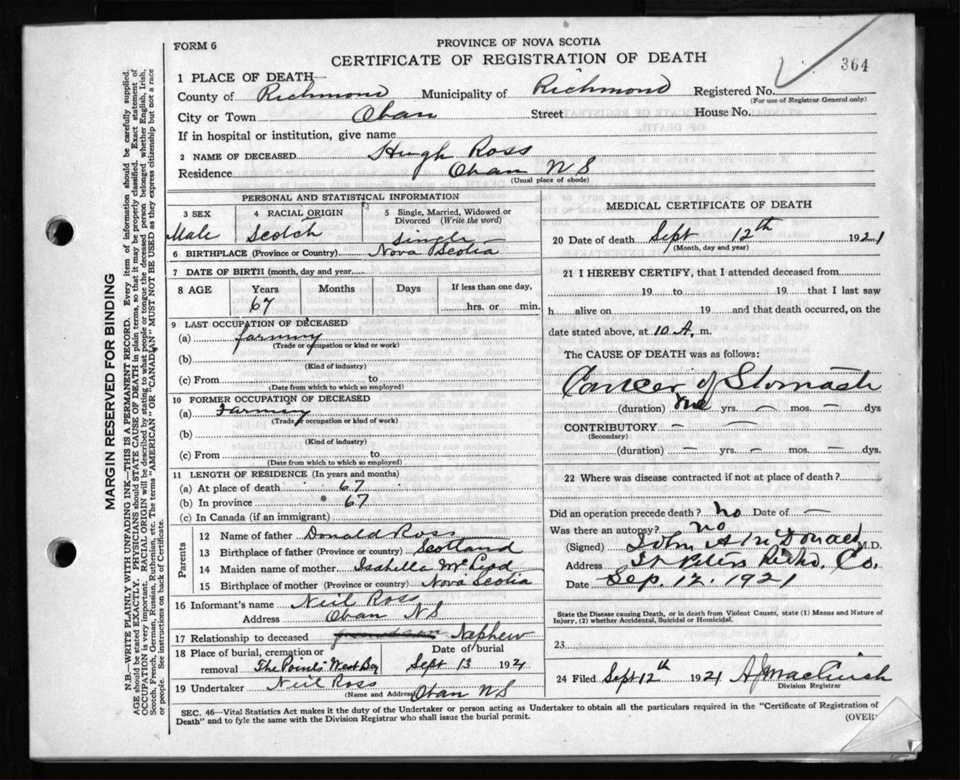 FORM 6
PROVINCE OF NOVA SCOTIA
CERTIFICATE OF REGISTRATION OF DEATH
364
1 PLACE OF DEATH—
County of Richmond Municipality of Richmond Registered No.
(For use of Registrar General only)
City or Town Oban Street House No.
If in hospital or institution, give name
2 NAME OF DECEASED Hugh Ross
Residence Oban N S
(Usual place of abode)
PERSONAL AND STATISTICAL INFORMATION
3 SEX Male
4 RACIAL ORIGIN Scotch
5 Single, Married, Widowed or Divorced (Write the word) Single
6 BIRTHPLACE (Province or Country) Nova Scotia
7 DATE OF BIRTH (month, day and year)
8 AGE Years 67 Months Days If less than one day, hrs. or min.
9 LAST OCCUPATION OF DECEASED
(a) farming
(Trade or occupation or kind or work)
(b)
(Kind of industry)
(c) From to
(Date from which to which so employed)
10 FORMER OCCUPATION OF DECEASED
(a) Farming
(Trade or occupation or kind of work)
(b)
(Kind of industry)
(c) From to
(Date from which to which so employed)
11 LENGTH OF RESIDENCE (In years and months)
(a) At place of death 67
(b) In province 67
(c) In Canada (if an immigrant)
Parents
12 Name of father Donald Ross
13 Birthplace of father (Province or country) Scotland
14 Maiden name of mother Isabella
15 Birthplace of mother (Province or country) Nova Scotia
16 Informant's name Neil Ross
Address Oban N S
17 Relationship to deceased Nephew
18 Place of burial, cremation or removal The Points West Bay
Date of burial Sept 13 1921
19 Undertaker Neil Ross
(Name and Address) Oban N S
MEDICAL CERTIFICATE OF DEATH
20 Date of death Sept 12th 1921
(Month, day and year)
21 I HEREBY CERTIFY, that I attended deceased from
19 to 19 that I last saw
h alive on 19 and that death occurred, on the
date stated above, at 10 A. m.
The CAUSE OF DEATH was as follows:
Cancer of Stomach
(duration) One yrs. — mos. — dys
CONTRIBUTORY — —
(Secondary)
(duration) — yrs. — mos. — dys.
22 Where was disease contracted if not at place of death?
Did an operation precede death? No Date of —
Was there an autopsy? No
(Signed) John A McDonald M.D.
Address St Peters Richd. Co.
Date Sep. 12. 1921
State the Disease causing Death, or in death from Violent Causes, state (1) Means and Nature of
Injury, (2) whether Accidental, Suicidal or Homicidal.
23
24 Filed Sept 12th 1921
Division Registrar
SEC. 46—Vital Statistics Act makes it the duty of the Undertaker or person acting as Undertaker to obtain all the particulars required in the "Certificate of Registration of
Death" and to fyle the same with the Division Registrar who shall issue the burial permit.
(OVER)
MARGIN RESERVED FOR BINDING
N.B.—WRITE PLAINLY WITH UNFADING INK—THIS IS A PERMANENT RECORD. Every item of information should be carefully supplied.
AGE should be stated EXACTLY. PHYSICIANS should STATE CAUSE OF DEATH in plain terms, so that it may be properly classified. Exact statement of
OCCUPATION is very important. RACIAL ORIGIN will be described by stating to what people or tongue the deceased person belonged whether English, Irish,
Scotch, French, German, Russian, Ruthenian, etc. The terms "AMERICAN" OR "CANADIAN" MUST NOT BE USED as they express citizenship but not a race
or people. See instructions on back of Certificate.